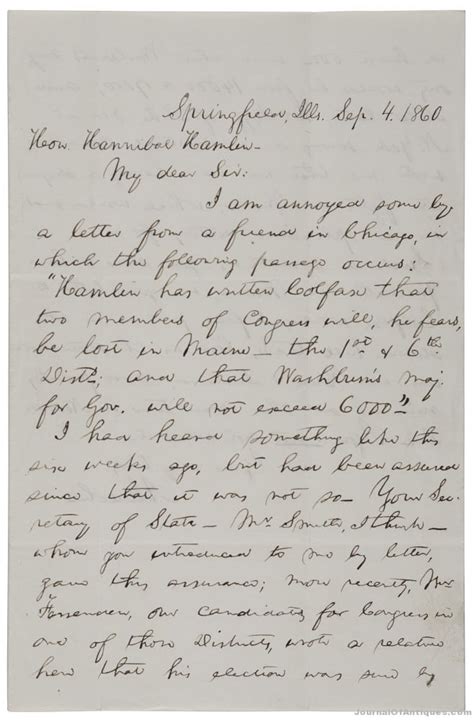 Springfield, Ills. Sep. 4. 1860
Hon. Hannibal Hamlin-
My dear Sir:
I am annoyed some by
a letter from a friend in Chicago, in
which the following passage occurs:
"Hamlin has written Colfax that
two members of Congress will, he fears,
be lost in Maine- the 1st & 6th
Dists; and that Washburn's maj.
for Gov. will not exceed 6000"
I had heard something like this
six weeks ago, but had been assured
since that it was not so- Your Sec-
retary of State- Mr. Smith, I think-
whom you introduced to me by letter,
gave this assurance; more recently, Mr.
Fessenden, our candidate for Congress in
one of those Districts, wrote a relative
here that his election was sure by
JournalOfAntiques.com